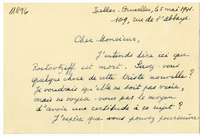 11896
Ixelles-Bruxelles, le 5 mai 1941.
109, rue de l'abbaye.
Cher Monsieur,
J'entends dire ici que
Rostovtzeff est mort. Savez-vous
quelque chose de cette triste nouvelle ?
Je voudrais qu'elle ne soit pas vraie,
mais ne voyez-vous pas le moyen
d'avoir une certitude à ce sujet ?
J'espère que vous pouvez poursuivre